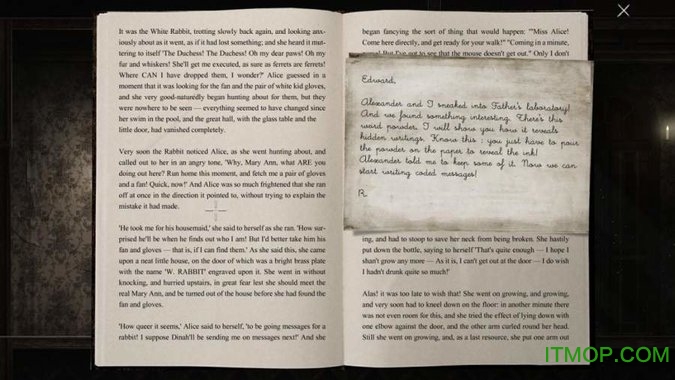 It was the White Rabbit, trotting slowly back again, and looking anx-
iously about as it went, as if it had lost something; and she heard it mut-
tering to itself 'The Duchess! The Duchess! Oh my dear paws! Oh my
fur and whiskers! She'll get me executed, as sure as ferrets are ferrets!
Where CAN I have dropped them, I wonder?' Alice guessed in a
moment that it was looking for the fan and the pair of white kid gloves,
and she very good-naturedly began hunting about for them, but they
were nowhere to be seen — everything seemed to have changed since
her swim in the pool, and the great hall, with the glass table and the
little door, had vanished completely.
Very soon the Rabbit noticed Alice, as she went hunting about, and
called out to her in an angry tone, 'Why, Mary Ann, what ARE you
doing out here? Run home this moment, and fetch me a pair of gloves
and a fan! Quick, now!' And Alice was so much frightened that she ran
off at once in the direction it pointed to, without trying to explain the
mistake it had made.
'He took me for his housemaid,' she said to herself as she ran. 'How sur-
prised he'll be when he finds out who I am! But I'd better take him his
fan and gloves — that is, if I can find them.' As she said this, she came
upon a neat little house, on the door of which was a bright brass plate
with the name 'W. RABBIT' engraved upon it. She went in without
knocking, and hurried upstairs, in great fear lest she should meet the
real Mary Ann, and be turned out of the house before she had found the
fan and gloves.
'How queer it seems,' Alice said to herself, 'to be going messages for a
rabbit! I suppose Dinah'll be sending me on messages next!' And she
began fancying the sort of thing that would happen: "'Miss Alice!
Come here directly, and get ready for your walk!" "Coming in a minute,
But I've got to see that the mouse doesn't get out." Only I don't
Edward,
Alexander and I sneaked into Father's laboratory!
And we found something interesting. There's this
powder. I will show you how it reveals
hidden writings. Know this : you just have to pour
the powder on the paper to reveal the ink!
Alexander told me to keep some of it. Now we can
start writing coded messages!
R.
ing, and had to stoop to save her neck from being broken. She hastily
put down the bottle, saying to herself 'That's quite enough — I hope I
shan't grow any more — As it is, I can't get out at the door — I do wish
I hadn't drunk quite so much!'
Alas! it was too late to wish that! She went on growing, and growing,
and very soon had to kneel down on the floor: in another minute there
was not even room for this, and she tried the effect of lying down with
one elbow against the door, and the other arm curled round her head.
Still she went on growing, and, as a last resource, she put one arm out
ITMOP.COM